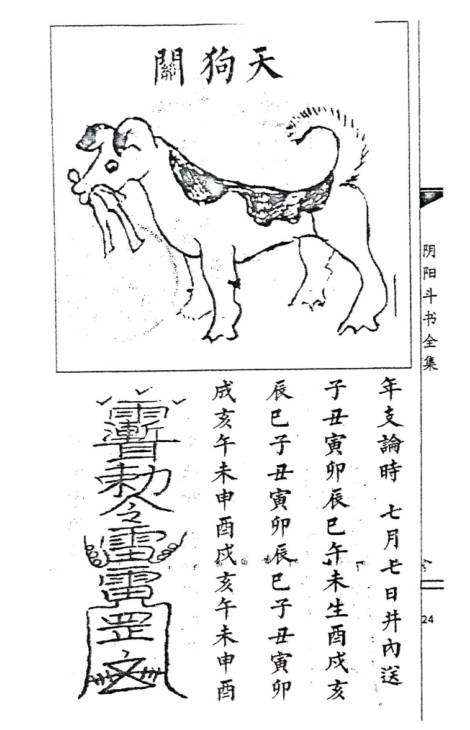 天狗關
年支論時 七月七日井內送
子丑寅卯辰巳午未生酉戌亥
辰巳子丑寅卯辰巳子丑寅卯
戌亥午未申酉戌亥午未申酉
敕令雷雷罡
阴阳斗书全集
24